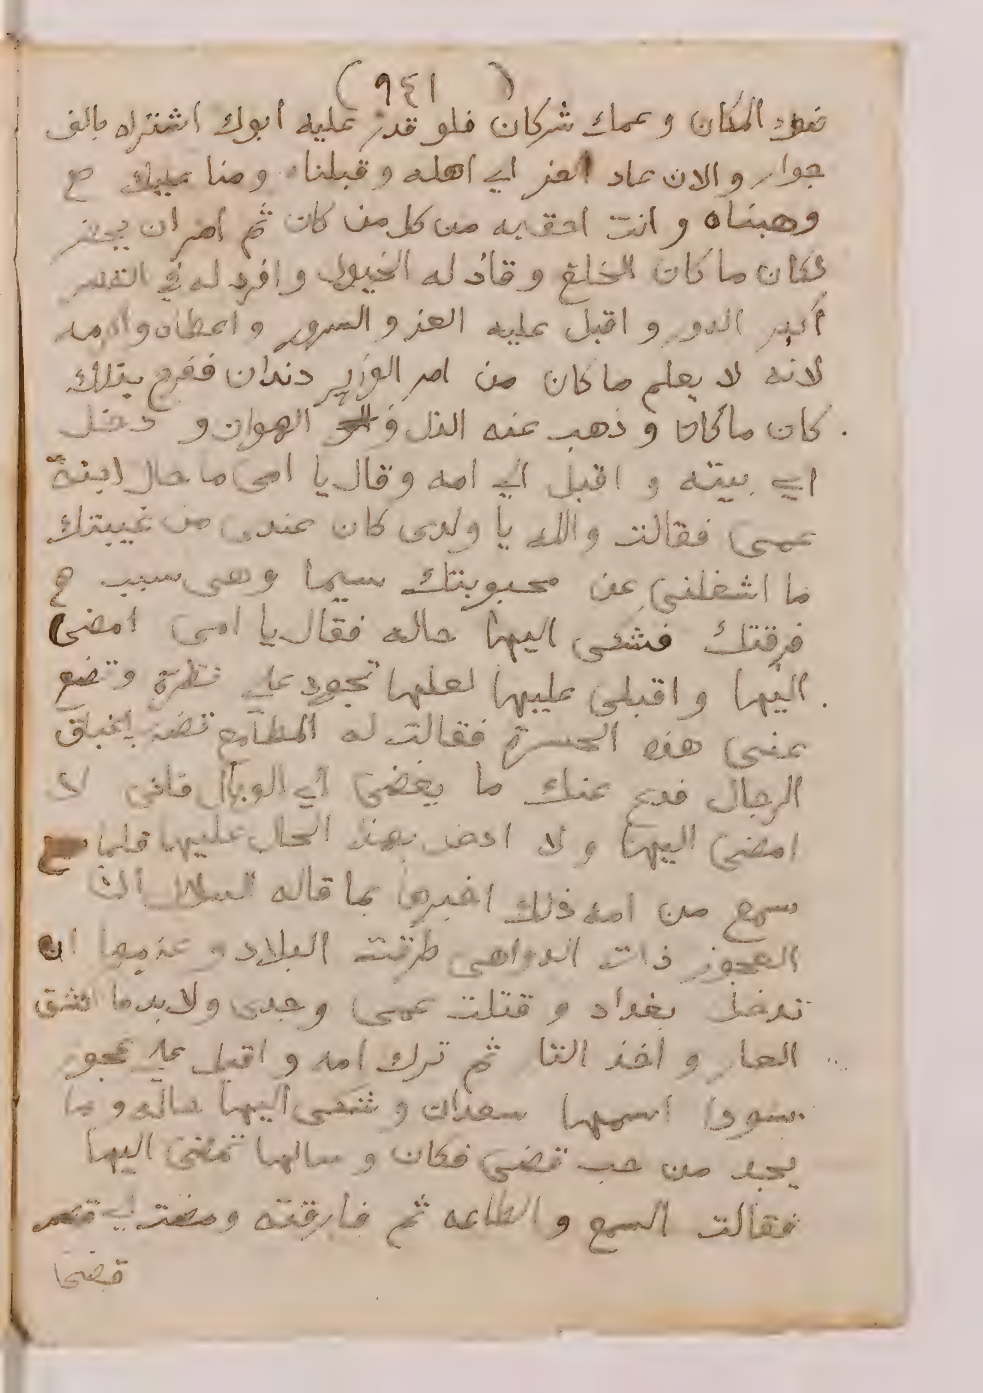 ( ٩٤١ )
المكان وعمك شركان فلو قدر عليه ابوك اشتراه بالف
جوار والان عاد العز الي اهله وقبلناه ومنا عليك
وهبناه وانت احق به من كل من كان ثم امر ان يحضر
لكان ما كان الخلع وقاد له الخيول وافرد له في القصر
أكبر الدور واقبل عليه العز والسرور واعطاه
لانه لا يعلم ما كان من امر الوزير دندان ففرح بتلك
كان ماكان وذهب عنه الذل و الهوان و دخل
الي بيته و اقبل الي امه وقال يا امي ما حال ابنة
عمي فقالت والله يا ولدى كان عندى من غيبتك
ما اشغلني عن محبوبتك سيما وهى سبب
فرقتك فشكى اليها حاله فقال يا امى امضى
اليها واقبلى عليها لعلها تجود علي بنظرة وتضع
عنى هذه الحسرة فقالت له المطامع تضع اعناق
الرجال فدع عنك ما يفضى الي الوبال فانى لا
امضى اليها ولا ادخل بهذا الحال عليها فلما
سمع من امه ذلك اخبرها بما قاله السلال ان
العجوز ذات الدواهى طرقت البلاد و عزمها ان
تدخل بغداد و قتلت عمى وجدى ولابد ما اكشف
العار و اخذ الثار ثم ترك امه و اقبل علي عجوز
سودا اسمها سعدان و شكى اليها حاله و ما
يجد من حب قضى فكان و سالها تمضى اليها
فقالت السمع و الطاعه ثم فارقته ومضت الي قصر
قضى